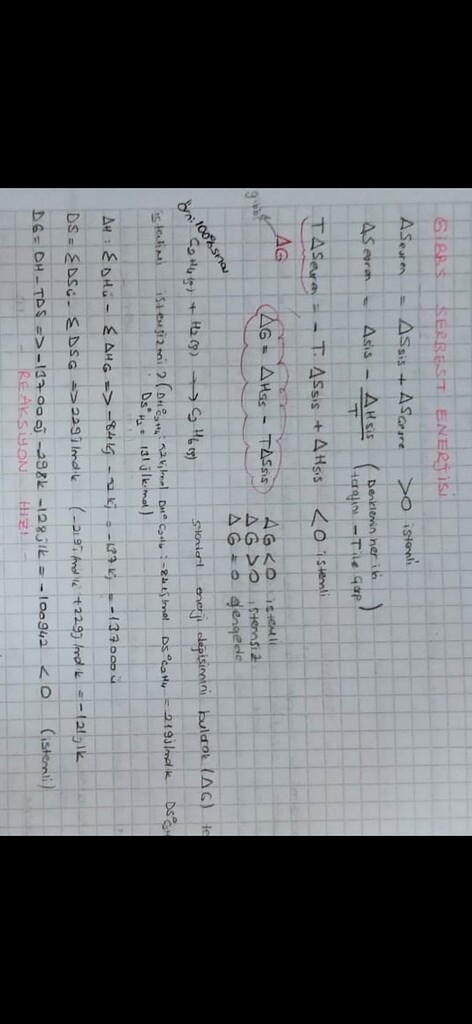 GİBBS SERBEST ENERJİSİ
ΔSevren = ΔSsis + ΔSçevre >0 istemli
ΔSevren = ΔSsis - ΔHsis / T (Denklemin her iki tarafını -T ile çarp)
TΔSevren = - T. ΔSsis + ΔHsis <0 istemli
ΔG
gibbs
ΔG = ΔHsis - TΔSsis
ΔG<0 istemli
ΔG>0 istemsiz
ΔG = 0 dengede
Örn: 100% sınav C2H4(g) + H2(g) → C2H6(g) standart enerji değişimini bularak (ΔG)
istemli mi istemsiz mi? (DH°C2H4: 52 kj/mol DH°C2H6: -84 kj/mol DS°C2H4 = 219 j/molk DS°C2H6
DS°H2 = 131 j/k.mol)
ΔH: ΣDHü - ΣΔHG => -84kj - 52 kj = -137kj = -137000j
DS = ΣDSü - ΣDSG => 229j/molk (-219j/molk + 229j/molk = -121j/k
DG = DH - TDS => -137000j - 298k - 128j/k = -100942 < 0 (istemli)
REAKSİYON HIZI